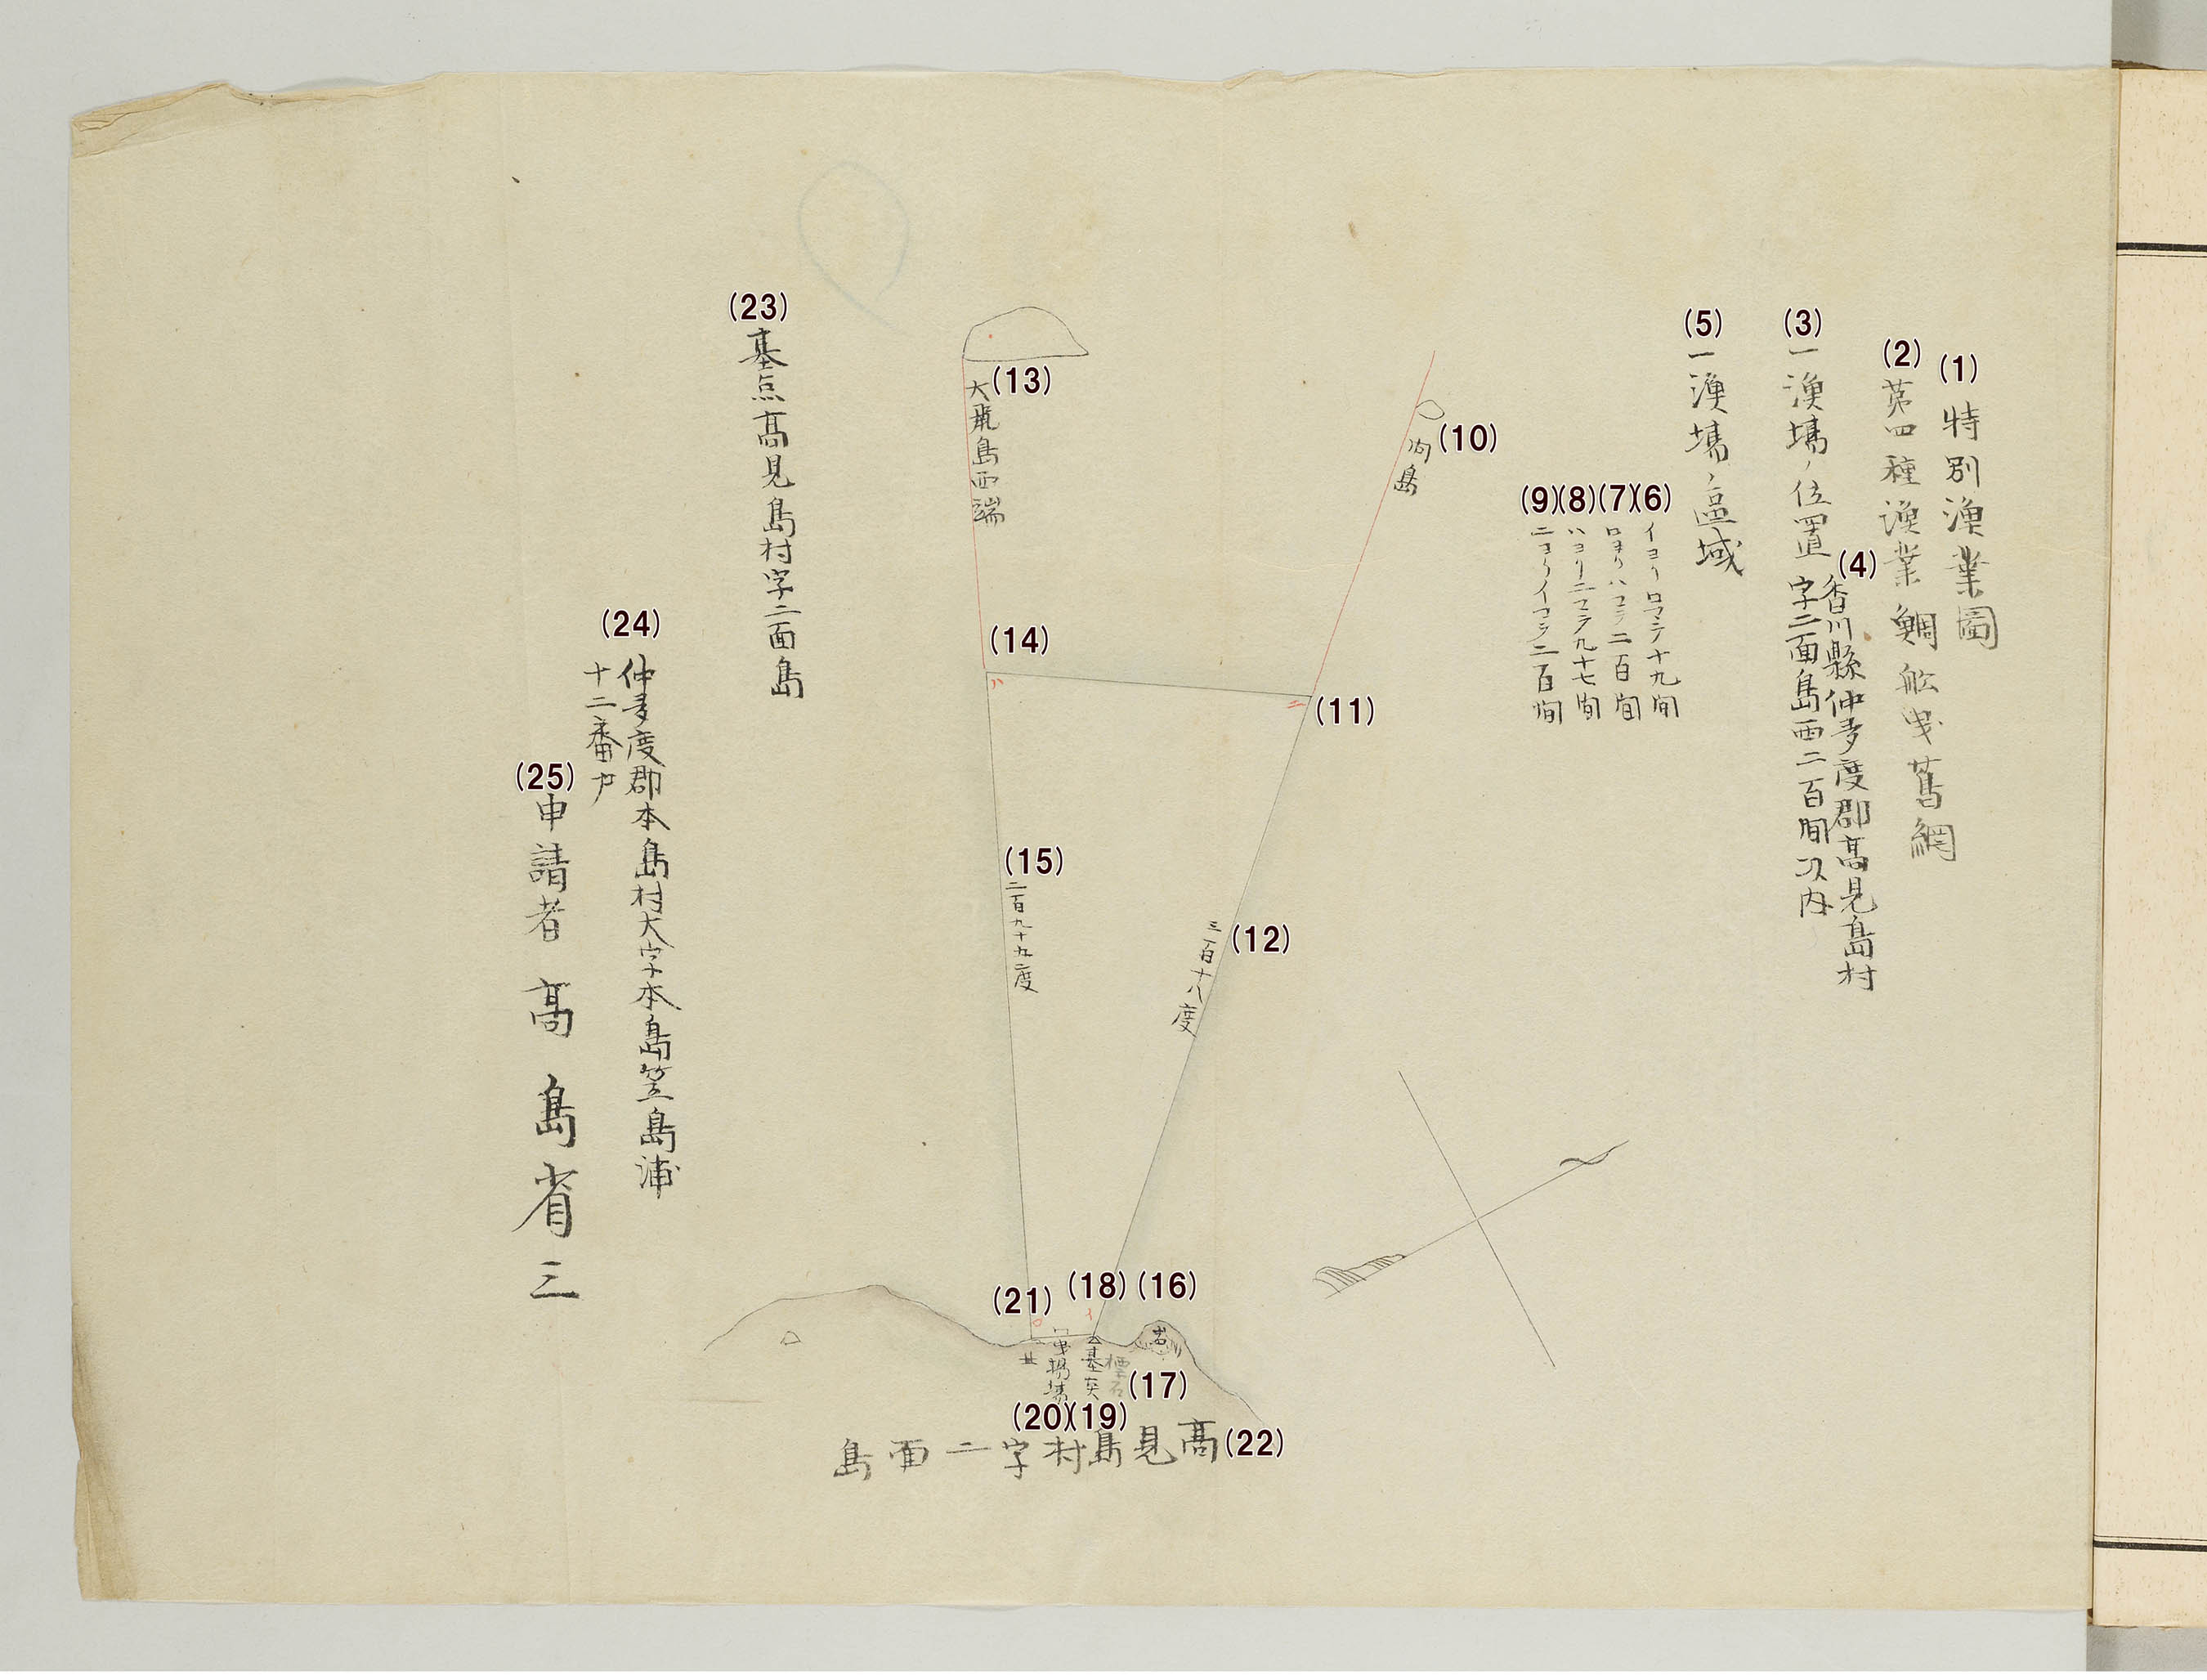 (1)特別漁業圖
(2)第四種漁業鯛舩曳蔦網
(3)一漁場ノ位置
(4)香川縣仲多度郡髙見島村
字二面島西二百間以内
(5)一漁場ノ區域
(6)イヨリロマテ十九間
(7)ロヨリハマテ二百間
(8)ハヨリニマテ九十七間
(9)ニヨリイマテ二百間
(10)向島
(11)ニ
(12)三百十八度
(13)大飛島西端
(14)ハ
(15)二百九十九度
(16)岩
(17)標石
(18)イ
(19)基点
(20)
(21)ロ
(22)髙見島村字二面島
(23)基点髙見島村字二面島
(24)仲多度郡本島村大字本島笠島浦
十二番戸
(25)申請者 髙島省三